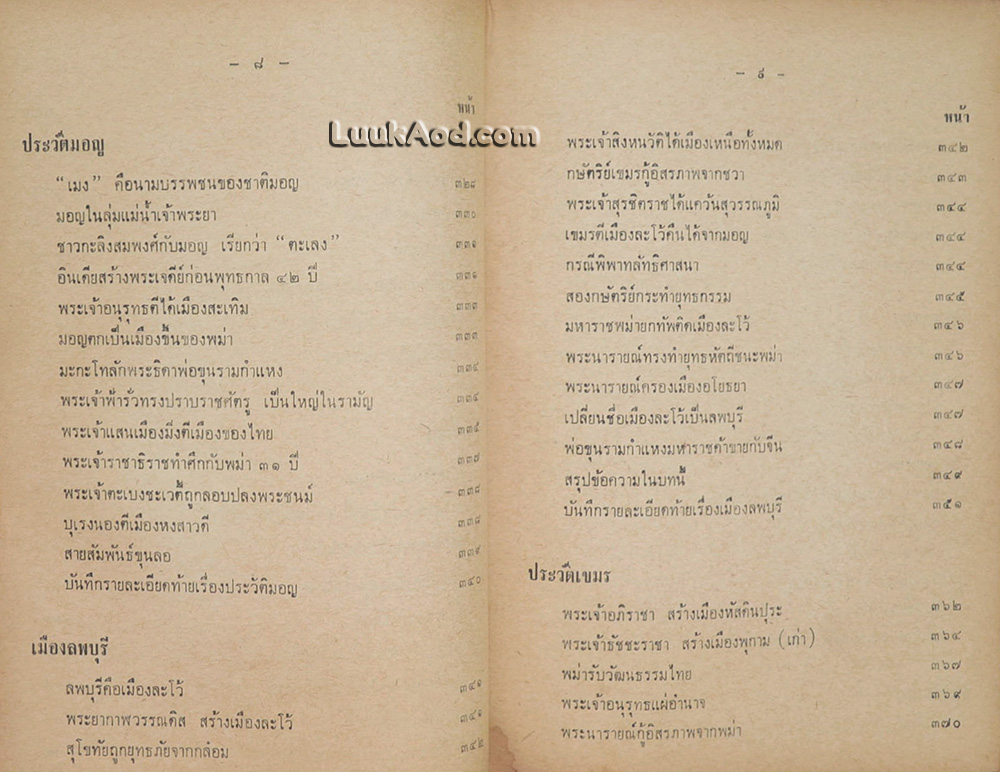 - ๘ -
หน้า
LuukAod.com
ประวัติมอญ
“เมง” คือนามบรรพชนของชาติมอญ ๓๒๘
มอญในลุ่มแม่น้ำเจ้าพระยา ๓๓๐
ชาวกะลิงสมพงศ์กับมอญ เรียกว่า “ตะเลง” ๓๓๑
อินเดียสร้างพระเจดีย์ก่อนพุทธกาล ๔๒ ปี ๓๓๑
พระเจ้าอนุรุทธตีได้เมืองสะเทิม ๓๓๓
มอญตกเป็นเมืองขึ้นของพม่า ๓๓๓
มะกะโทลักพระธิดาพ่อขุนรามกำแหง ๓๓๔
พระเจ้าฟ้ารั่วทรงปราบราชศัตรู เป็นใหญ่ในรามัญ ๓๓๔
พระเจ้าแสนเมืองมิ่งตีเมืองของไทย ๓๓๕
พระเจ้าราชาธิราชทำศึกกับพม่า ๓๑ ปี ๓๓๗
พระเจ้าตะเบงชะเวตี้ถูกลอบปลงพระชนม์ ๓๓๘
บุเรงนองตีเมืองหงสาวดี ๓๓๘
สายสัมพันธ์ขุนลอ ๓๓๙
บันทึกรายละเอียดท้ายเรื่องประวัติมอญ ๓๔๐
เมืองลพบุรี
ลพบุรีคือเมืองละโว้ ๓๔๑
พระยากาฬวรรณดิส สร้างเมืองละโว้ ๓๔๑
สุโขทัยถูกยุทธภัยจากกล๋อม ๓๔๒
- ๙ -
หน้า
พระเจ้าสิงหนวัติได้เมืองเหนือทั้งหมด ๓๔๒
กษัตริย์เขมรกู้อิสรภาพจากชวา ๓๔๓
พระเจ้าสุรชิตราชได้แคว้นสุวรรณภูมิ ๓๔๔
เขมรตีเมืองละโว้คืนได้จากมอญ ๓๔๔
กรณีพิพาทลัทธิศาสนา ๓๔๔
สองกษัตริย์กระทำยุทธกรรม ๓๔๕
มหาราชพม่ายกทัพติดเมืองละโว้ ๓๔๖
พระนารายณ์ทรงทำยุทธหัตถีชนะพม่า ๓๔๖
พระนารายณ์ครองเมืองอโยธยา ๓๔๗
เปลี่ยนชื่อเมืองละโว้เป็นลพบุรี ๓๔๗
พ่อขุนรามกำแหงมหาราชค้าขายกับจีน ๓๔๘
สรุปข้อความในบทนี้ ๓๔๙
บันทึกรายละเอียดท้ายเรื่องเมืองลพบุรี ๓๕๑
ประวัติเขมร
พระเจ้าอภิราชา สร้างเมืองหัสดินปุระ ๓๖๒
พระเจ้าธัชชะราชา สร้างเมืองพุกาม (เก่า) ๓๖๔
พม่ารับวัฒนธรรมไทย ๓๖๗
พระเจ้าอนุรุทธแผ่อำนาจ ๓๖๙
พระนารายณ์กู้อิสรภาพจากพม่า ๓๗๐